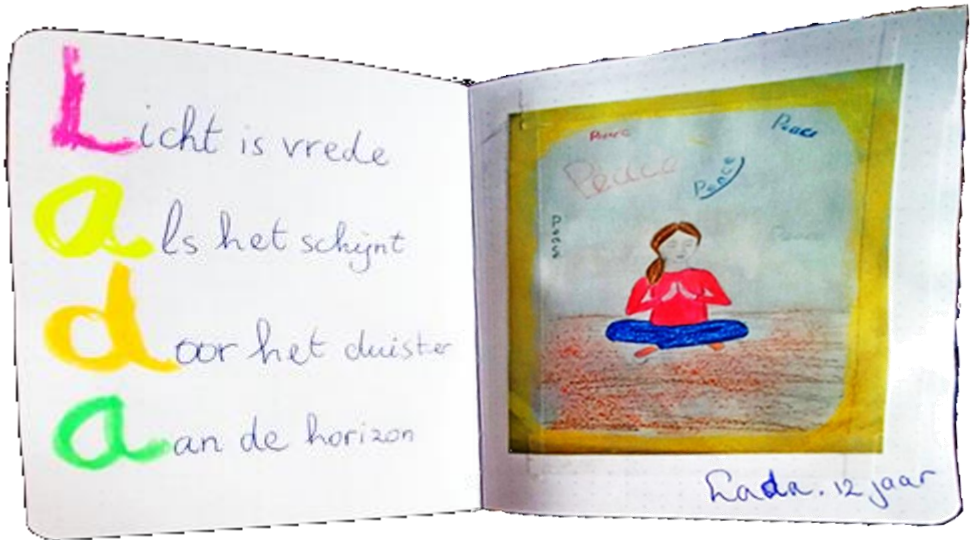 Licht is vrede
als het schijnt
door het duister
aan de horizon
Peace
Peace
Peace
Peace
Peace
Lada. 12 jaar